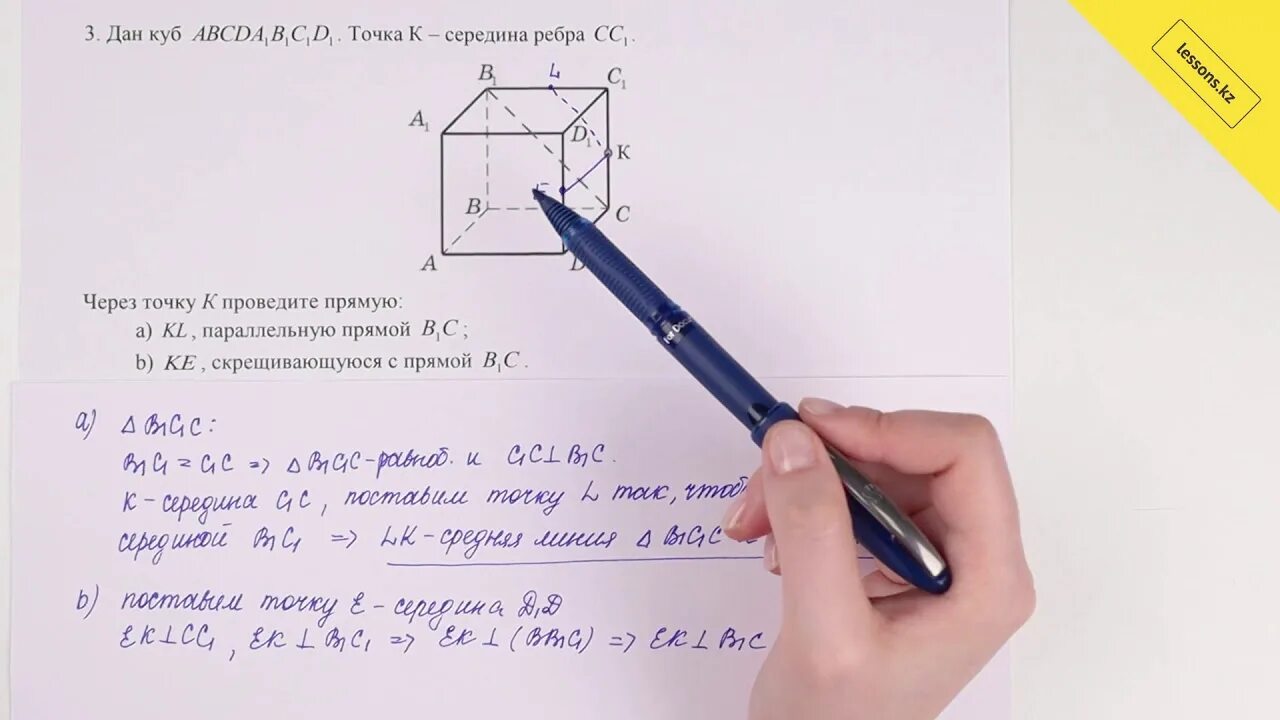 3. Дан куб ABCDA₁B₁C₁D₁. Точка К – середина ребра CC₁.
lessons.kz
L
B₁
C₁
A₁
D₁
K
E
B
C
A
D
Через точку K проведите прямую:
a) KL, параллельную прямой B₁C;
b) KE, скрещивающуюся с прямой B₁C.
a) △ B₁C₁C:
B₁C₁ = C₁C => △ B₁C₁C - равноб. и C₁C ⊥ B₁C.
K - середина C₁C, поставим точку L так, чтобы
серединой B₁C₁ => LK - средняя линия △ B₁C₁C
b) поставим точку E - середина D₁D
EK ⊥ CC₁, EK ⊥ B₁C₁ => EK ⊥ (BB₁C₁) => EK ⊥ B₁C
for Docu